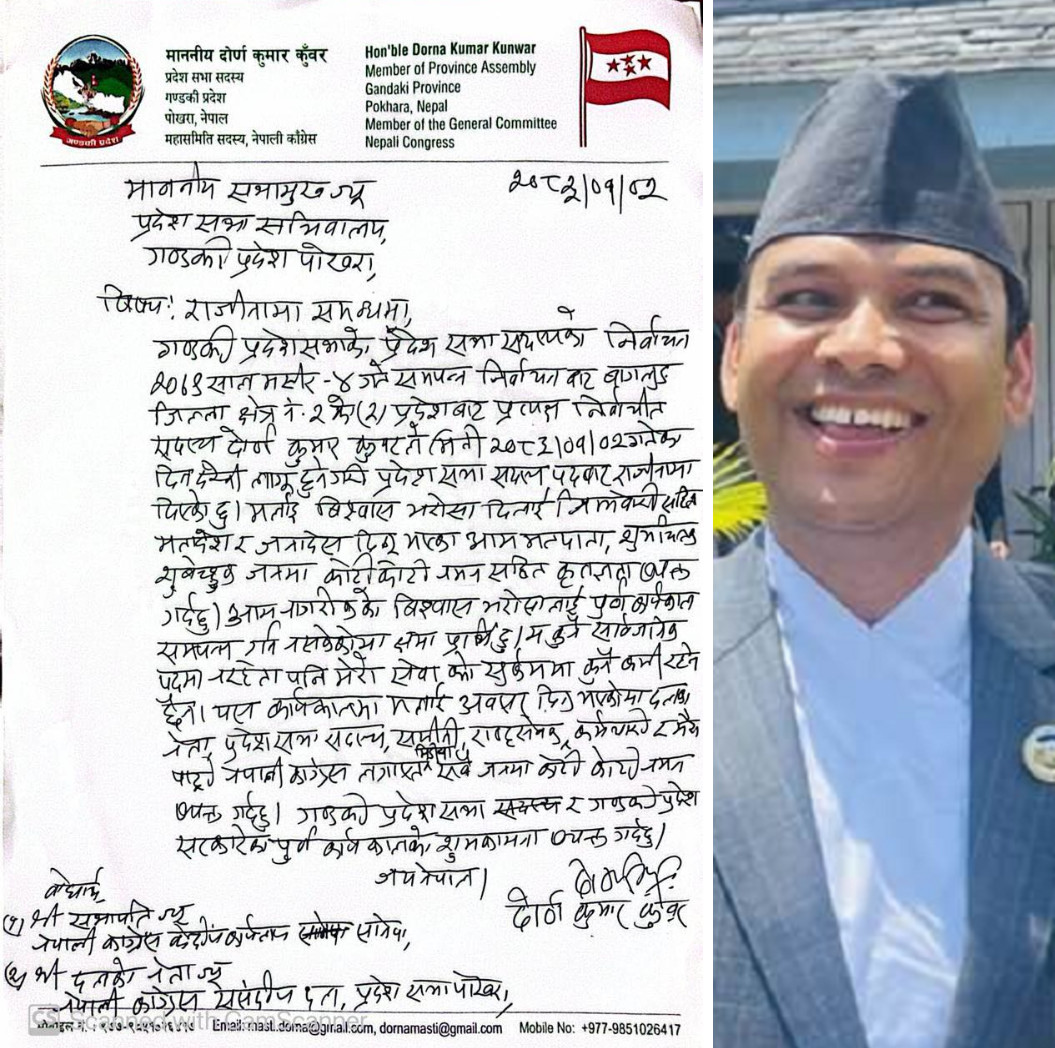 माननीय दोर्ण कुमार कुँवर
प्रदेश सभा सदस्य
गण्डकी प्रदेश
पोखरा, नेपाल
महासमिति सदस्य, नेपाली काँग्रेस
Hon'ble Dorna Kumar Kunwar
Member of Province Assembly
Gandaki Province
Pokhara, Nepal
Member of the General Committee
Nepali Congress
गण्डकी प्रदेश
माननीय सभामुख ज्यू
२०८२/०९/०२
प्रदेश सभा सचिवालय,
गण्डकी प्रदेश पोखरा,
विषय: राजीनामा सम्बन्धमा,
गण्डकी प्रदेश सभाको प्रदेश सभा सदस्यको निर्वाचन
२०७९ साल मंसीर-४ गते सम्पन्न निर्वाचन बाट बागलुङ
जिल्ला क्षेत्र नं. २ को (२) प्रदेशबाट प्रत्यक्ष निर्वाचीत
सदस्य दोर्ण कुमार कुवरले मिती २०८२/०९/०२ गतेका
दिन देखी लागू हुने गरी प्रदेश सभा सदस्य पदबाट राजीनामा
दिएको छु। मलाई विश्वास भरोसा दिलाई जिम्मेवारी सहित
मतादेश र जनादेश दिनु भएका आम मतदाता, शुभचिन्तक
शुभेच्छुक जनमा कोटी कोटी नमन सहित कृतज्ञता व्यक्त
गर्दछु। आम नागरीकको विश्वास भरोसालाई पूर्ण कार्यकाल
सम्पन्न गर्न नसकेकोमा क्षमा प्रार्थी छु। म कुनै सार्वजनिक
पदमा नरहे ता पनि मेरो सेवा को सुकर्ममा कुनै कमी रहने
छैन। यस कार्यकालमा मलाई अवसर दिनु भएकोमा दलका
नेता, प्रदेश सभा सदस्य, समिती, राष्ट्रसेवक, कर्मचारी र मेरो
पार्टी नेपाली काग्रेस लगायत मिडिया सबै जनमा कोटी कोटी नमन
व्यक्त गर्दछु। गण्डकी प्रदेश सभा सदस्य र गण्डकी प्रदेश
सरकारको पूर्ण कार्यकालको शुभकामना व्यक्त गर्दछु।
जय नेपाल।
दोर्ण कुमार कुँवर
बोधार्थ
(१) श्री सभापति ज्यू
नेपाली काग्रेस केन्द्रीय कार्यालय सानेपा,
(२) श्री दलको नेता ज्यू
नेपाली काग्रेस संसदीय दल, प्रदेश सभा पोखरा,
CS Scanned with CamScanner
Email: masti.dorna@gmail.com, dornamasti@gmail.com
Mobile No: +977-9851026417